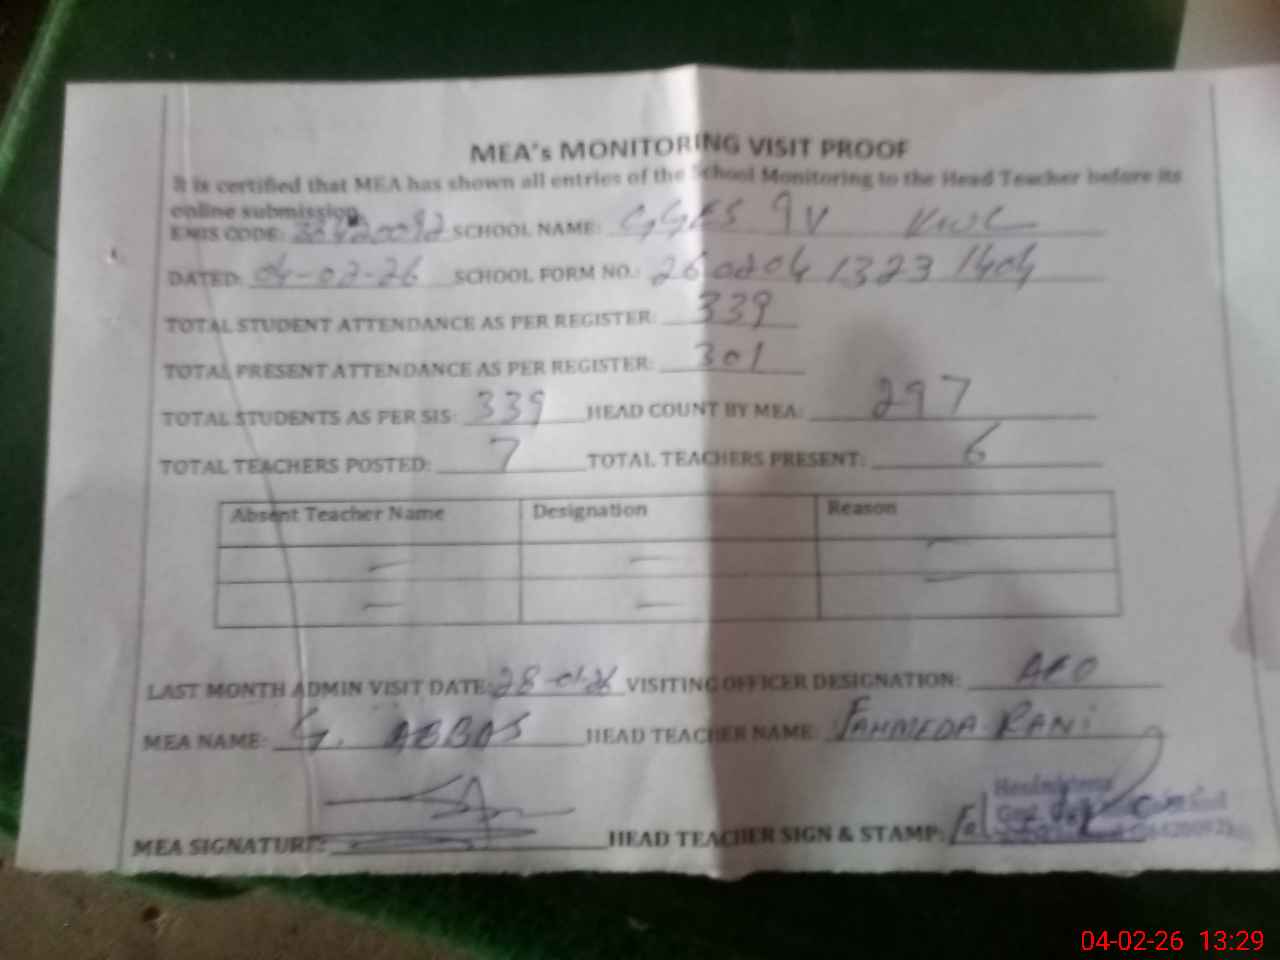 MEA's MONITORING VISIT PROOF
It is certified that MEA has shown all entries of the School Monitoring to the Head Teacher before its
online submission.
EMIS CODE: SCHOOL NAME: GGES 9V KWL
DATED: 04-02-26 SCHOOL FORM NO.: 260204 1323 1404
TOTAL STUDENT ATTENDANCE AS PER REGISTER: 339
TOTAL PRESENT ATTENDANCE AS PER REGISTER: 301
TOTAL STUDENTS AS PER SIS: 339 HEAD COUNT BY MEA: 297
TOTAL TEACHERS POSTED: 7 TOTAL TEACHERS PRESENT: 6
Absent Teacher Name Designation Reason
— — —
— — —
LAST MONTH ADMIN VISIT DATE: 28-01-26 VISITING OFFICER DESIGNATION: AEO
MEA NAME: G. ABBAS HEAD TEACHER NAME: FAHMEDA RANI
MEA SIGNATURE: HEAD TEACHER SIGN & STAMP:
Headmistress
04-02-26 13:29